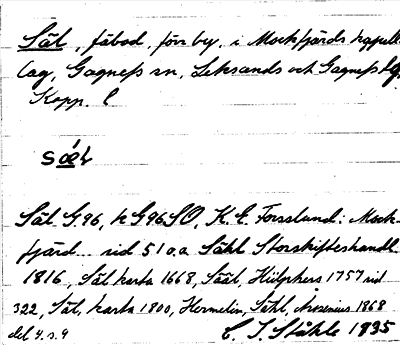 Säl, fäbod, förr by, i Mockfjärds kapell-
lag, Gagnefs sn, Leksands och Gagnefs tlg,
Kopp. l
sǽl
Säl G.96, h G96SO, K. E. Forsslund: Mock-
fjärd sid 51 o.a. Sähl Storskifteshandl.
1816, Säl karta 1668, Sääl, Hülphers 1757 sid
322, Säl, karta 1800, Hermelin, Sähl, Arosenius 1868
del 4. s. 9
C. I. Ståhle 1935